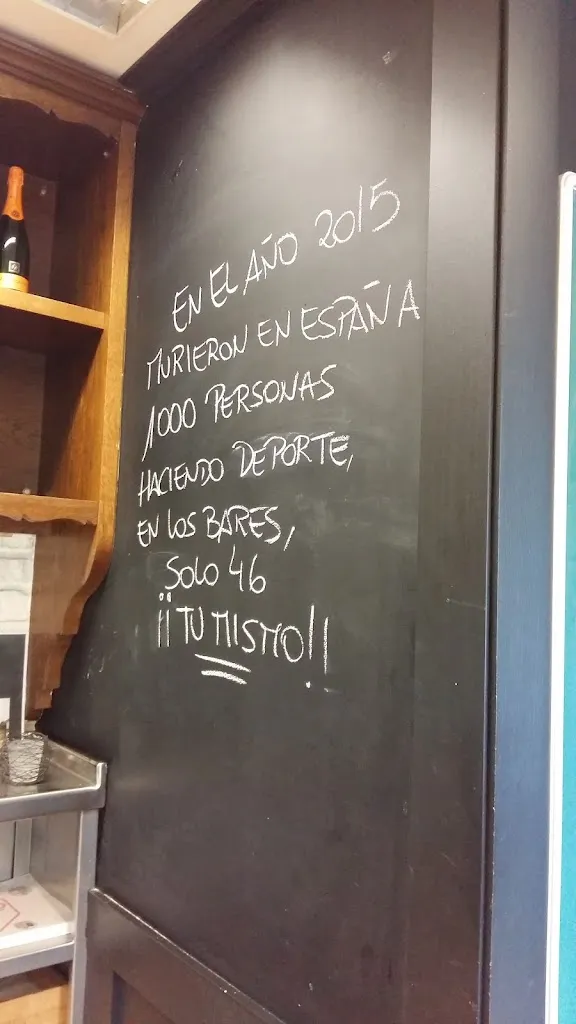 EN EL AÑO 2015
MURIERON EN ESPAÑA
1000 PERSONAS
HACIENDO DEPORTE,
EN LOS BARES,
SOLO 46
¡¡TU MISMO!!